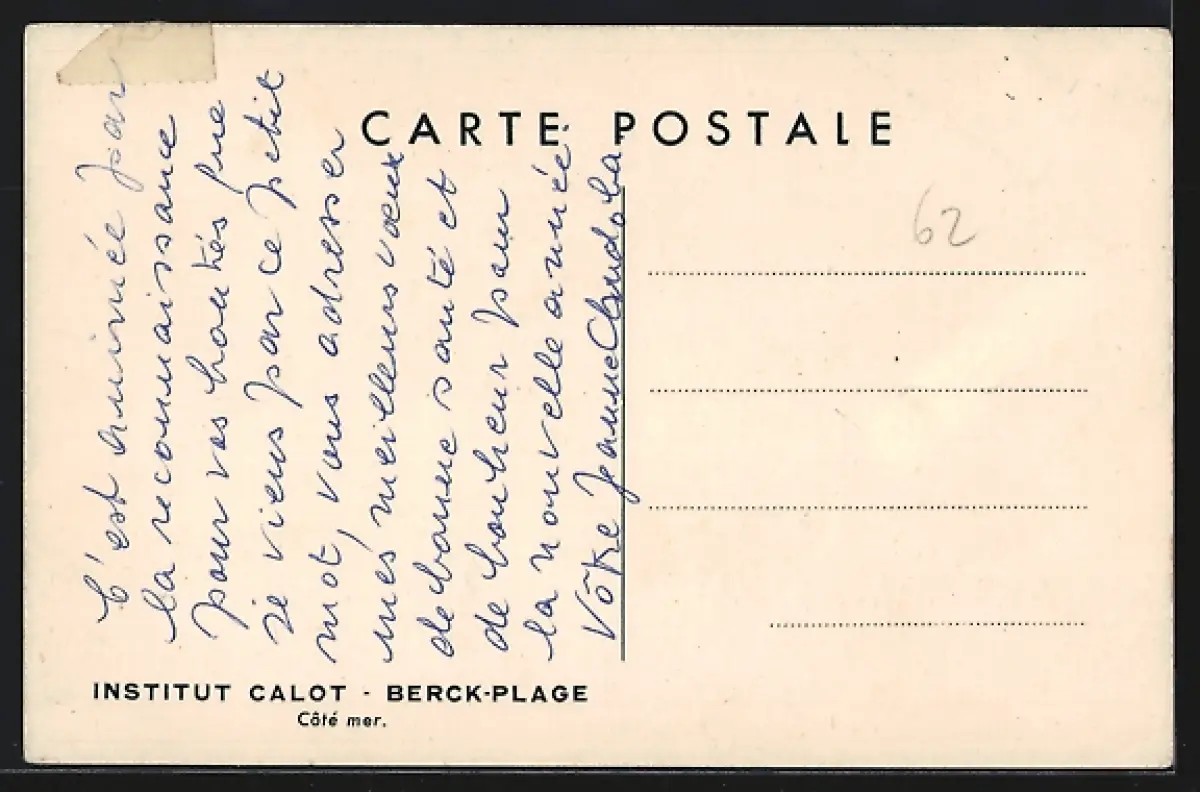 CARTE POSTALE
C'est animée par
la reconnaissance
pour vos bontés que
je viens par ce petit
mot, vous adresser
mes meilleurs vœux
de bonne santé et
de bonheur pour
la nouvelle année
Vôtre
62
INSTITUT CALOT - BERCK-PLAGE
Côté mer.